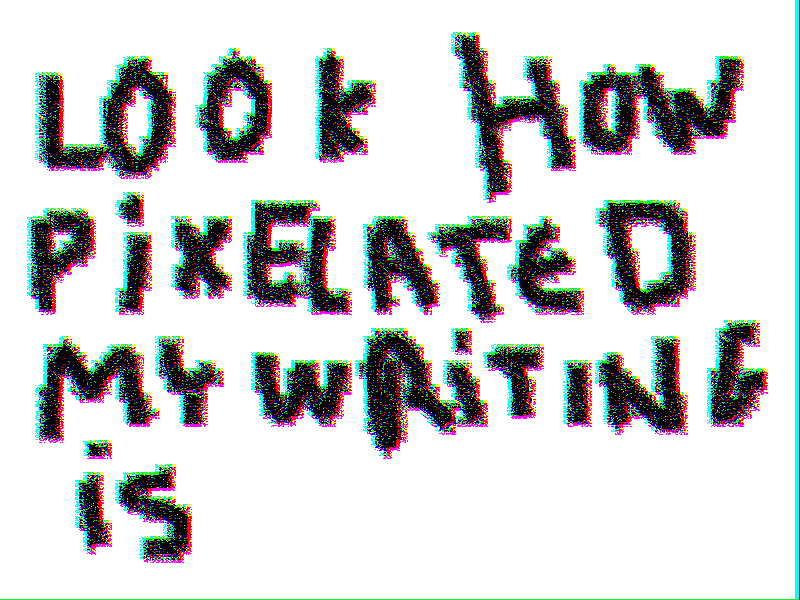 LOOk HoW
PiXELATeD
MY WRiTiNG
is